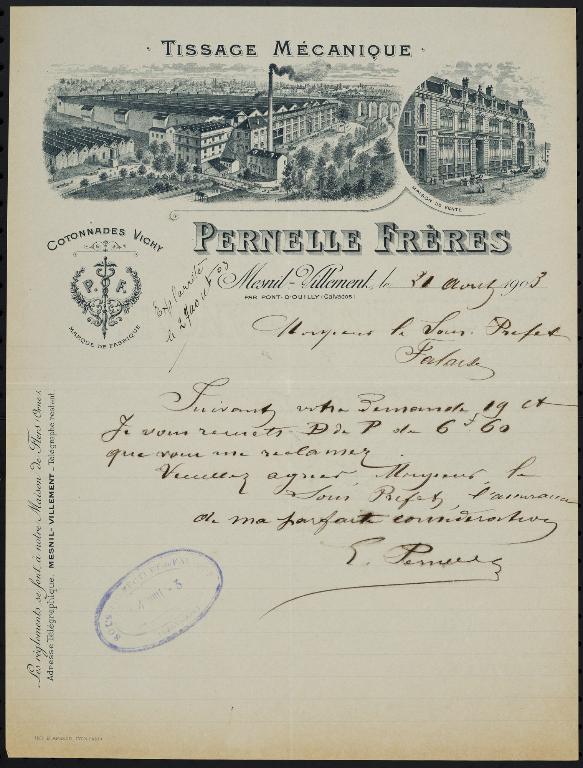 TISSAGE MÉCANIQUE
MAISON DE VENTE
COTONNADES VICHY
P. F.
MARQUE DE FABRIQUE
PERNELLE FRÈRES
Mesnil-Villement, le 21 Août 1903
PAR PONT-D'OUILLY (Calvados)
le 29 août 03
Monsieur le Sous-Prefet
Falaise
Suivant votre demande 19 ct
Je vous remets D de P de 6 60
que vous me reclamez
Veuillez agreer, Monsieur le
Sous Prefet, l'assurance
de ma parfaite consideration
E. Pernelle
Les règlements se font à notre Maison de Flers (Orne).
Adresse Télégraphique. MESNIL-VILLEMENT - Télégraphe restant